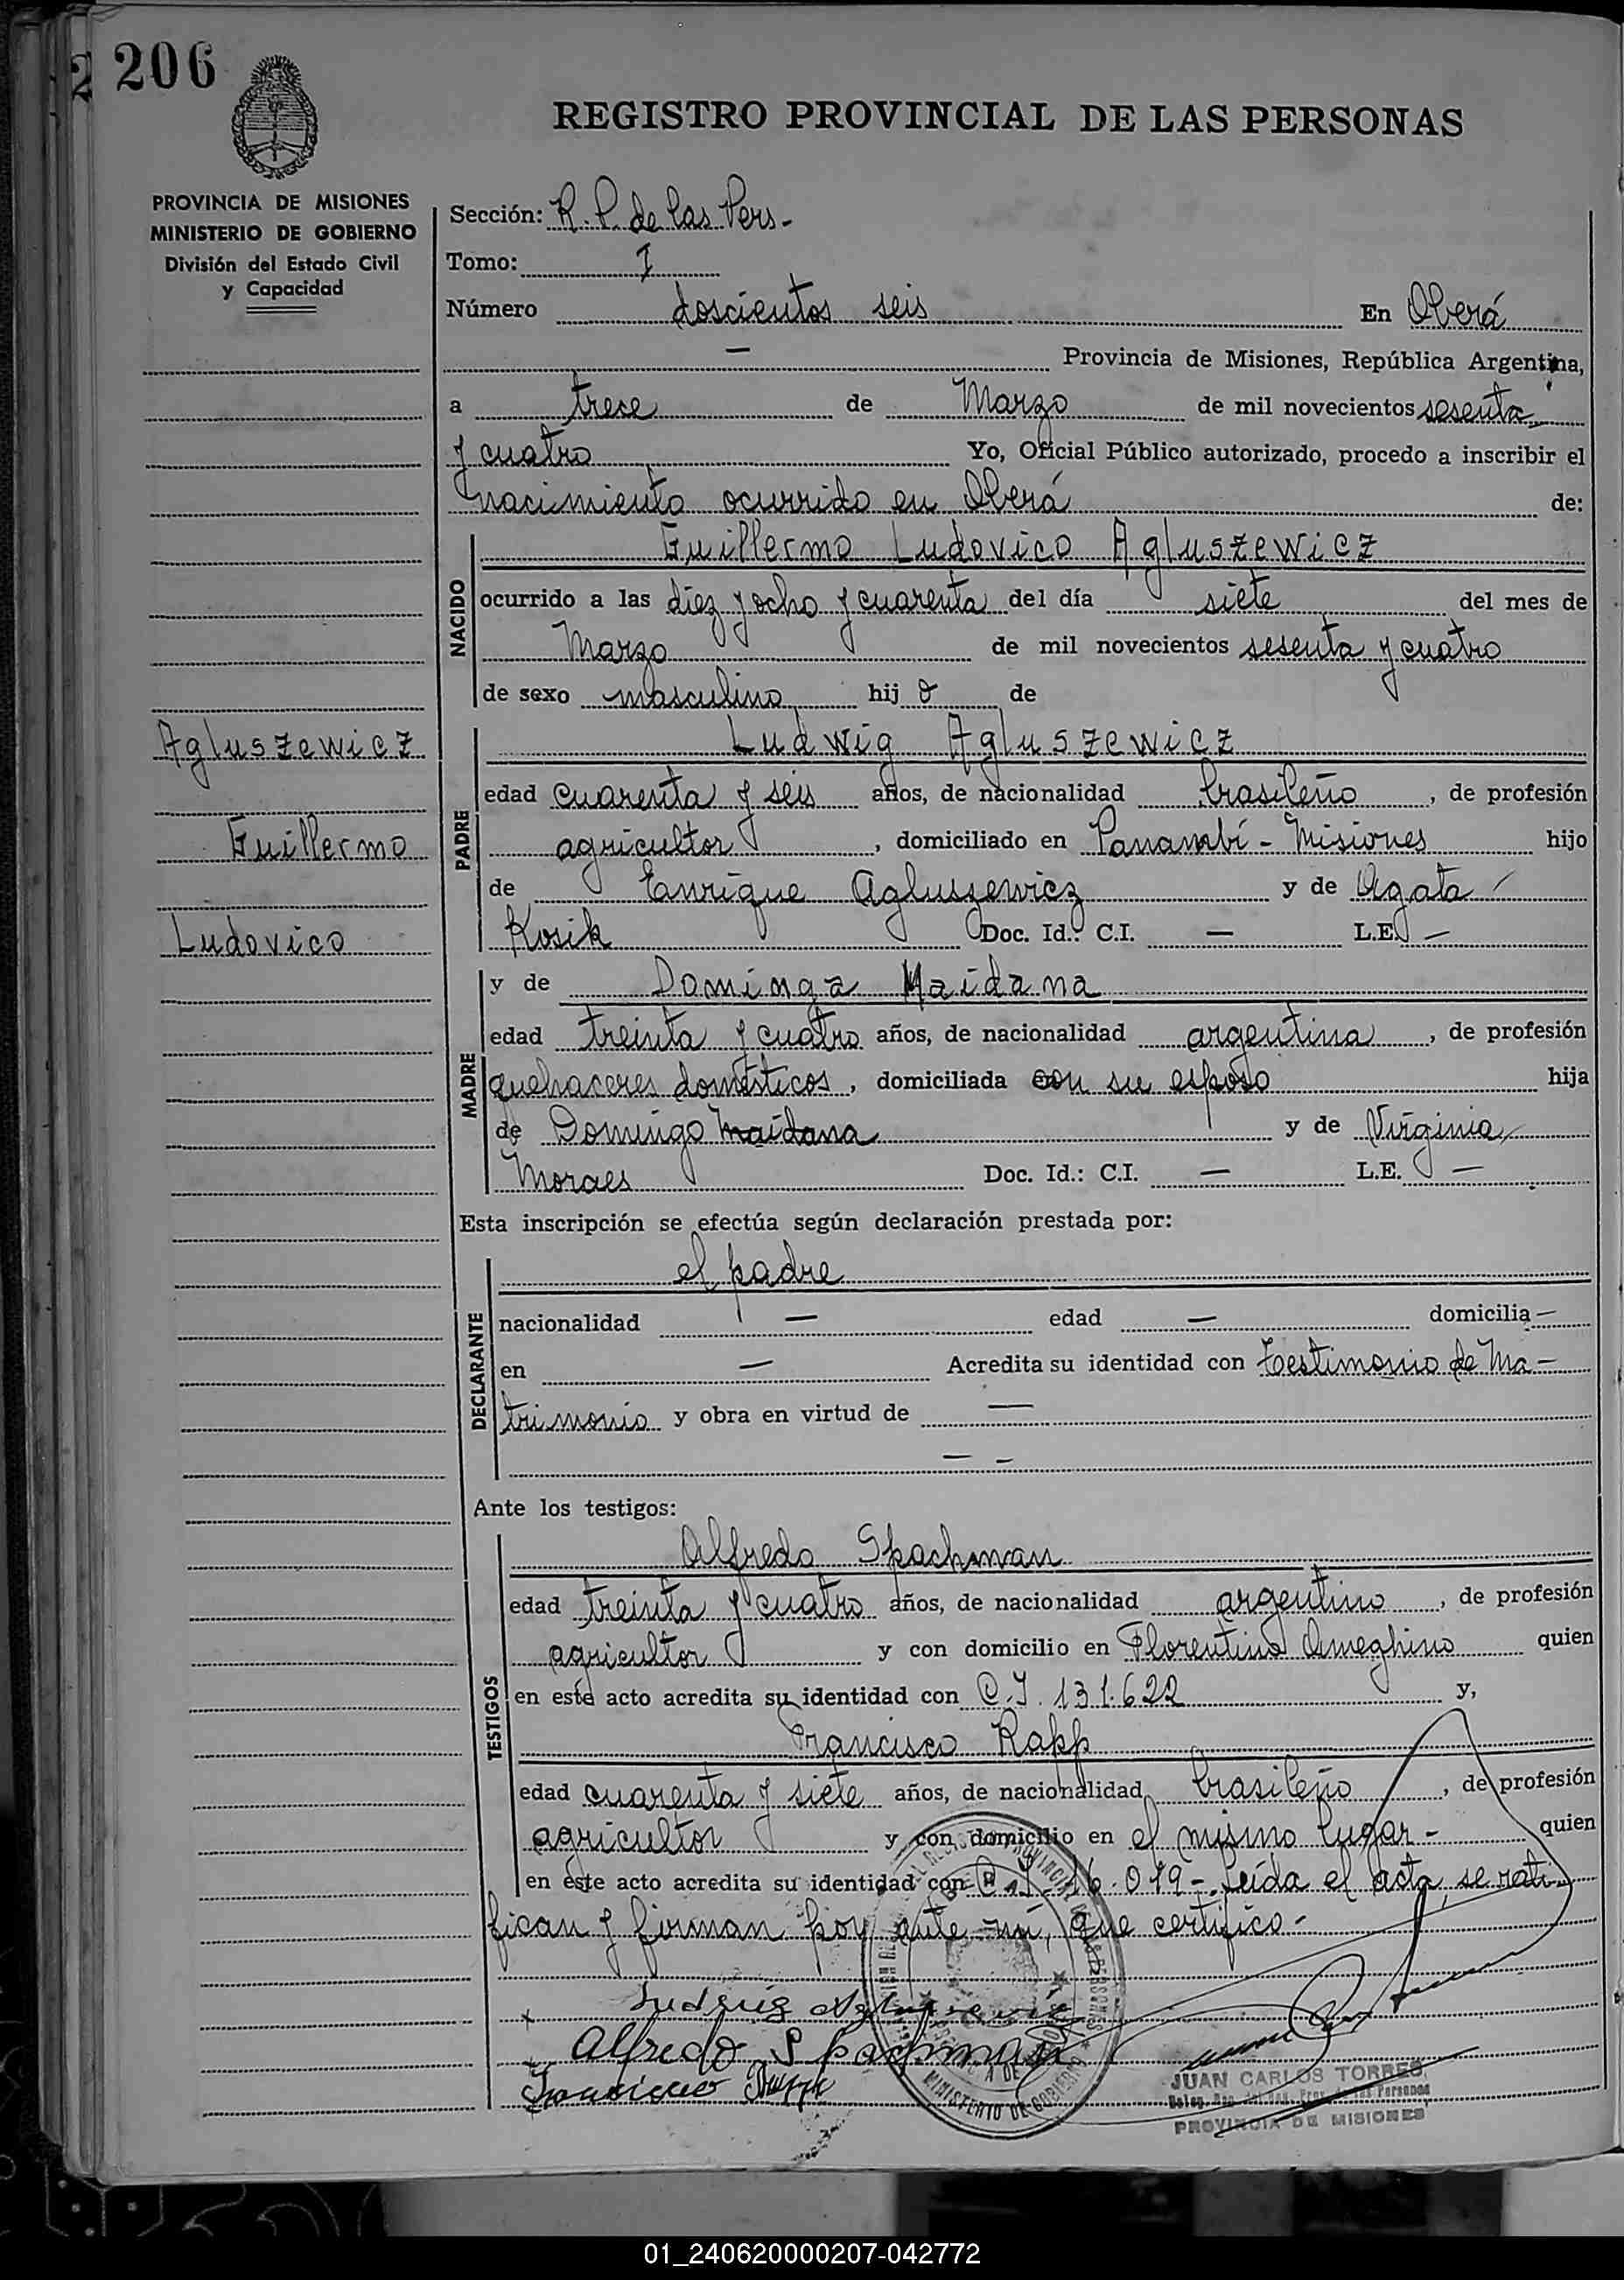 206
REGISTRO PROVINCIAL DE LAS PERSONAS
PROVINCIA DE MISIONES
MINISTERIO DE GOBIERNO
División del Estado Civil
y Capacidad
Sección: R. P. de las Pers.-
Tomo: I
Número doscientos seis En Oberá
— Provincia de Misiones, República Argentina,
a trece de Marzo de mil novecientos sesenta
y cuatro Yo, Oficial Público autorizado, procedo a inscribir el
nacimiento ocurrido en Oberá de:
NACIDO
Guillermo Ludovico Agluszewicz
ocurrido a las diez y ocho y cuarenta del día siete del mes de
Marzo de mil novecientos sesenta y cuatro
de sexo masculino hijo de
Agluszewicz
Guillermo
Ludovico
PADRE
Ludwig Agluszewicz
edad cuarenta y seis años, de nacionalidad brasileño, de profesión
agricultor, domiciliado en Panambí - Misiones hijo
de Enrique Agluszewicz y de Agata
Kosik Doc. Id.: C.I. — L.E. —
MADRE
y de Dominga Maidana
edad treinta y cuatro años, de nacionalidad argentina, de profesión
quehaceres domésticos, domiciliada con su esposo hija
de Domingo Maidana y de Virginia
Moraes Doc. Id.: C.I. — L.E. —
Esta inscripción se efectúa según declaración prestada por:
DECLARANTE
el padre
nacionalidad — edad — domicilia —
en — Acredita su identidad con testimonio de Ma-
trimonio y obra en virtud de —
— -
Ante los testigos:
TESTIGOS
Alfredo Spachman
edad treinta y cuatro años, de nacionalidad argentino, de profesión
agricultor y con domicilio en Florentino Ameghino quien
en este acto acredita su identidad con C.I. 131.622 y,
Francisco Rapp
edad cuarenta y siete años, de nacionalidad brasileño, de profesión
agricultor y con domicilio en el mismo lugar- quien
en este acto acredita su identidad con C.I. 6.019-. Leída el acta, se rati-
fican y firman hoy ante mí, que certifico.-
Alfredo Spachman
JUAN CARLOS TORRES
PROVINCIA DE MISIONES
MINISTERIO DE GOBIERNO
01_240620000207-042772